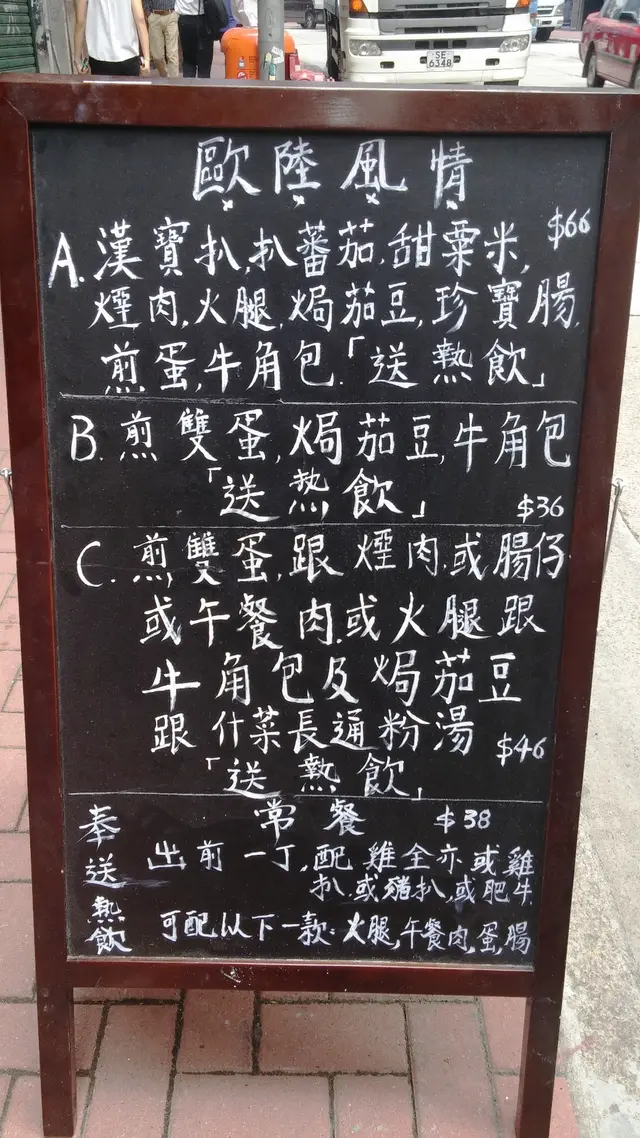 SE
6348
歐陸風情
A. 漢寶扒,扒蕃茄,甜粟米, $66
煙肉,火腿,焗茄豆,珍寶腸,
煎蛋,牛角包.「送熱飲」
B. 煎雙蛋,焗茄豆,牛角包
「送熱飲」 $36
C. 煎雙蛋,跟煙肉.或腸仔
或午餐肉.或火腿跟
牛角包及焗茄豆
跟什菜長通粉湯 $46
「送熱飲」
常餐 $38
奉送熱飲
出前一丁,配雞全亦或雞
扒,或豬扒,或肥牛
可配以下一款:火腿,午餐肉,蛋,腸